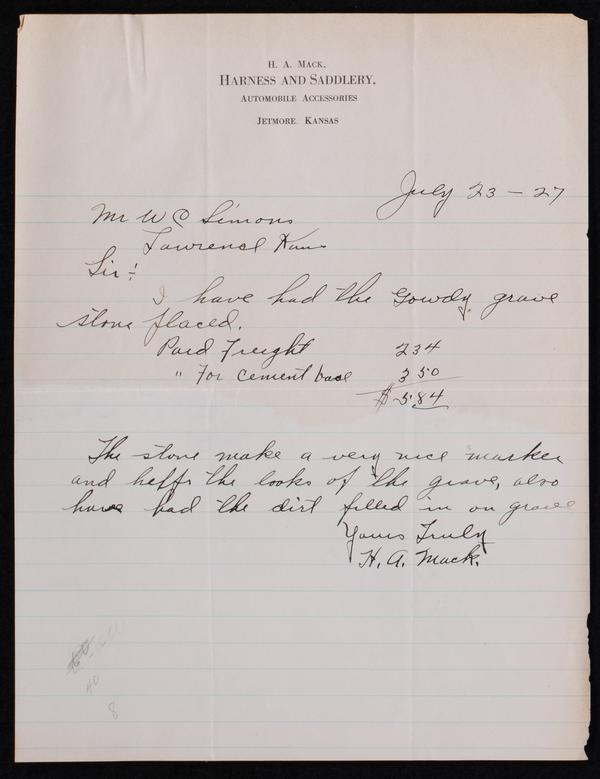 H. A. Mack,
Harness and Saddlery,
Automobile Accessories
Jetmore, Kansas
July 23 - 27
Mr W C Simons
Lawrence Kans
Sir :
I have had the Gowdy grave
stone placed.
Paid Freight 2 34
" For cement base 3 50
$ 5.84
The stone make a very nice marker
and helps the looks of the grave, also
have had the dirt filled in on grave
Yours Truly
H. A. Mack.
40
8